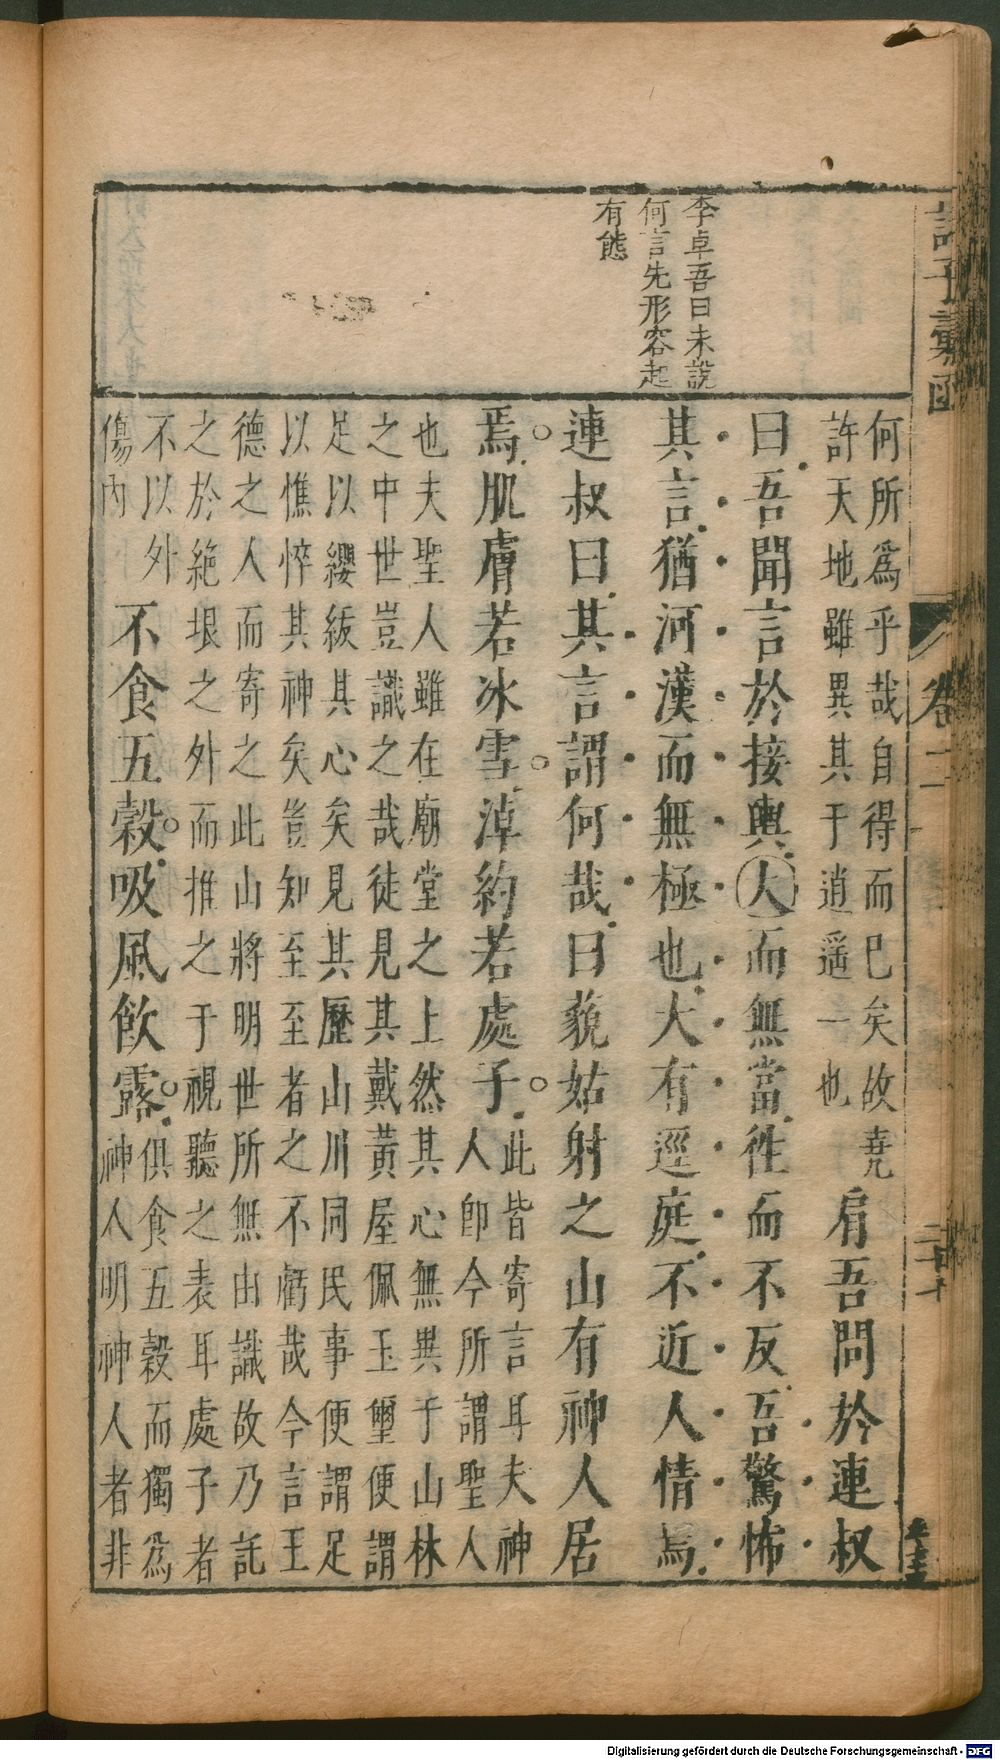 諸子彙函
卷二
李卓吾曰未說
何言先形容起
有態
何所爲乎哉自得而已矣故堯
許天地雖異其于逍遙一也
肩吾問於連叔
曰吾聞言於接輿大而無當徃而不反吾驚怖
其言猶河漢而無極也大有逕庭不近人情焉
連叔曰其言謂何哉曰藐姑射之山有神人居
焉肌膚若冰雪淖約若處子
此皆寄言耳夫神
人即今所謂聖人
也夫聖人雖在廟堂之上然其心無異于山林
之中世豈識之哉徒見其戴黃屋佩玉璽便謂
足以纓紱其心矣見其歷山川同民事便謂足
以憔悴其神矣豈知至至者之不虧哉今言王
德之人而寄之此山將明世所無由識故乃託
之於絕垠之外而推之于視聽之表耳處子者
不以外
傷內
不食五穀吸風飲露
俱食五穀而獨爲
神人明神人者非
Digitalisierung gefördert durch die Deutsche Forschungsgemeinschaft - DFG